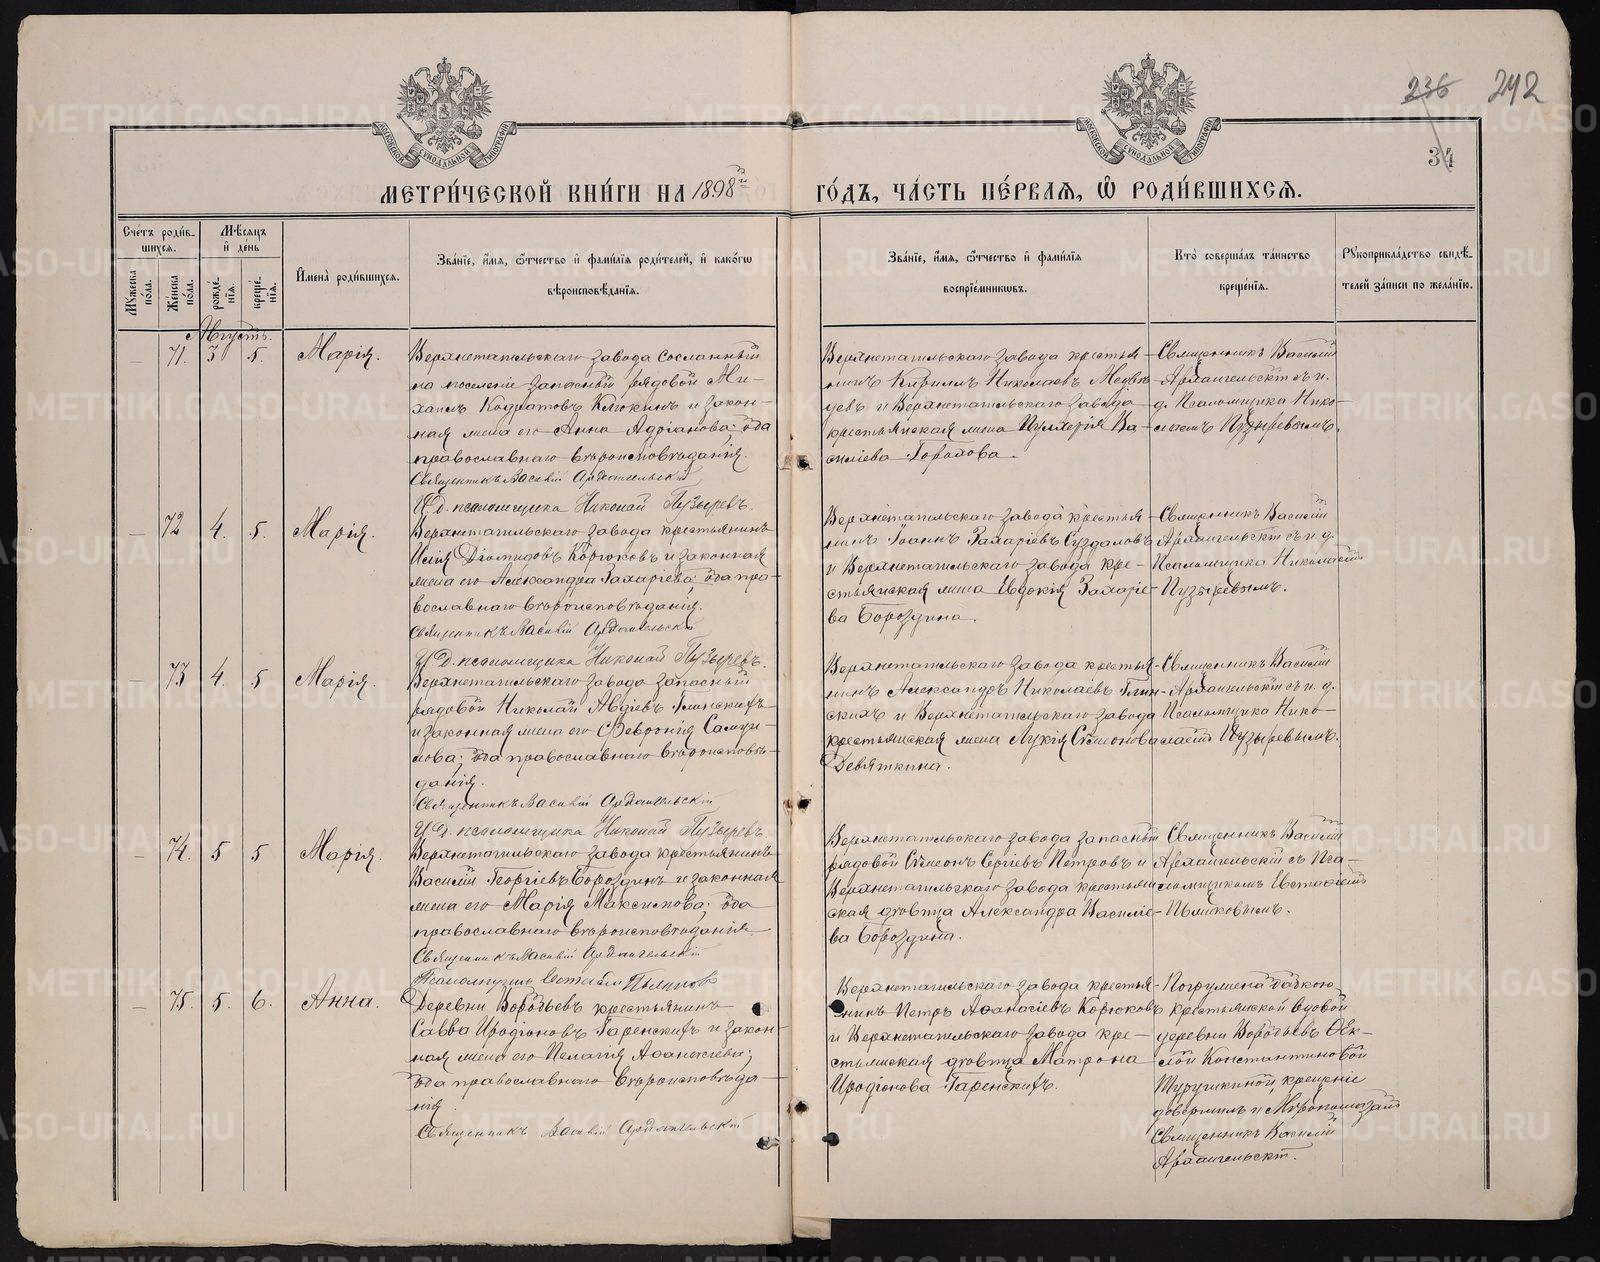 236 242
34
МОСКОВСКОЙ СѴНОДАЛЬНОЙ ТИПОГРАФІИ
МОСКОВСКОЙ СѴНОДАЛЬНОЙ ТИПОГРАФІИ
МЕТРИ́ЧЕСКОЙ КНИ́ГИ НА 1898й
ГО́ДЪ, ЧА́СТЬ ПЕ́РВАЯ, Ѡ҆ РОДИ́ВШИХСЯ.
Счетъ роди́в-
шихся.
Мѣсяцъ
и де́нь
Мужеска по́ла.
Же́нска по́ла.
рожде́-нія.
креще́-нія.
И҆мена̀ роди́вшихся.
Зва́ніе, и҆́мя, ѻ҆́тчество и҆ фами́лія роди́телей, и҆ како́гѡ
вѣроисповѣ́данія.
Зва́ніе, и҆́мя, ѻ҆́тчество и҆ фами́лія
воспріе́мниковъ.
Кто̀ соверша́лъ та́инство
креще́нія.
Рукоприкла́дство свидѣ́-
телей за́писи по жела́нію.
Августъ.
— 71. 3 5. Марія.
Верхнетагильскаго завода сосланный
на поселеніе запасный рядовой Ми-
хаилъ Кодратовъ Клюкинъ и закон-
ная жена его Анна Адріанова; оба
православнаго вѣроисповѣданія.
Священникъ Василій Архангельскій
И.д. псаломщика Николай Пузыревъ.
Верхнетагильскаго завода крестья-
нинъ Кириллъ Николаевъ Медвѣ-
девъ и Верхнетагильскаго завода
крестьянская жена Пулхерія Ва-
силіева
Священникъ Василій
Архангельскій съ и.
д. Псаломщика Нико-
лаемъ Пузыревымъ.
— 72 4. 5. Марія.
Верхнетагильскаго завода крестьянинъ
Илія Діомидовъ Корюковъ и законная
жена его Александра Захаріева; оба пра-
вославнаго вѣроисповѣданія.
Священникъ Василій Архангельскій
И.д. псаломщика Николай Пузыревъ.
Верхнетагильскаго завода крестья-
нинъ Іоаннъ Захаріевъ Суздаловъ
и Верхнетагильскаго завода кре-
стьянская жена Евдокія Захаріе-
ва Бороздина.
Священникъ Василій
Архангельскій съ и.д.
Псаломщика Николаемъ
Пузыревымъ.
— 73 4. 5 Марія.
Верхнетагильскаго завода запасный
рядовой Николай Авдіевъ Глинскихъ
и законная жена его Февронія Самуи-
лова; оба православнаго вѣроисповѣ-
данія.
Священникъ Василій Архангельскій
И.д. псаломщика Николай Пузыревъ.
Верхнетагильскаго завода крестья-
нинъ Александръ Николаевъ Глин-
скихъ и Верхнетагильскаго завода
крестьянская жена Лукія Сѵмеонова
Девяткина.
Священникъ Василій
Архангельскій съ и.д.
Псаломщика Нико-
лаемъ Пузыревымъ.
— 74. 5 5 Марія.
Верхнетагильскаго завода крестьянинъ
Василій Георгіевъ Бороздинъ и законная
жена его Марія Максимова; оба
православнаго вѣроисповѣданія.
Священникъ Василій Архангельскій
Псаломщикъ Евстафій Пьянковъ
Верхнетагильскаго завода запасный
рядовой Сѵмеонъ Сергіевъ Петровъ и
Верхнетагильскаго завода крестьян-
ская дѣвица Александра Василіе-
ва Бороздина.
Священникъ Василій
Архангельскій съ Пса-
ломщикомъ Евстафіемъ
Пьянковымъ.
— 75. 5. 6. Анна.
Деревни Воробьевъ крестьянинъ
Савва Иродіоновъ Гаренскихъ и закон-
ная жена его Пелагія Аѳанасіева;
оба православнаго вѣроисповѣда-
нія.
Священникъ Василій Архангельскій
Верхнетагильскаго завода крестья-
нинъ Петръ Аѳанасіевъ Корюковъ
и Верхнетагильскаго завода кре-
стьянская дѣвица Матрона
Иродіонова Гаренскихъ.
Погружена бабкою
крестьянской вдовой
деревни Воробьевъ Ѳек-
лой Константиновой
крещеніе
довершилъ и мѵропомазалъ
Священникъ Василій
Архангельскій.
METRIKI.GASO-URAL.RU